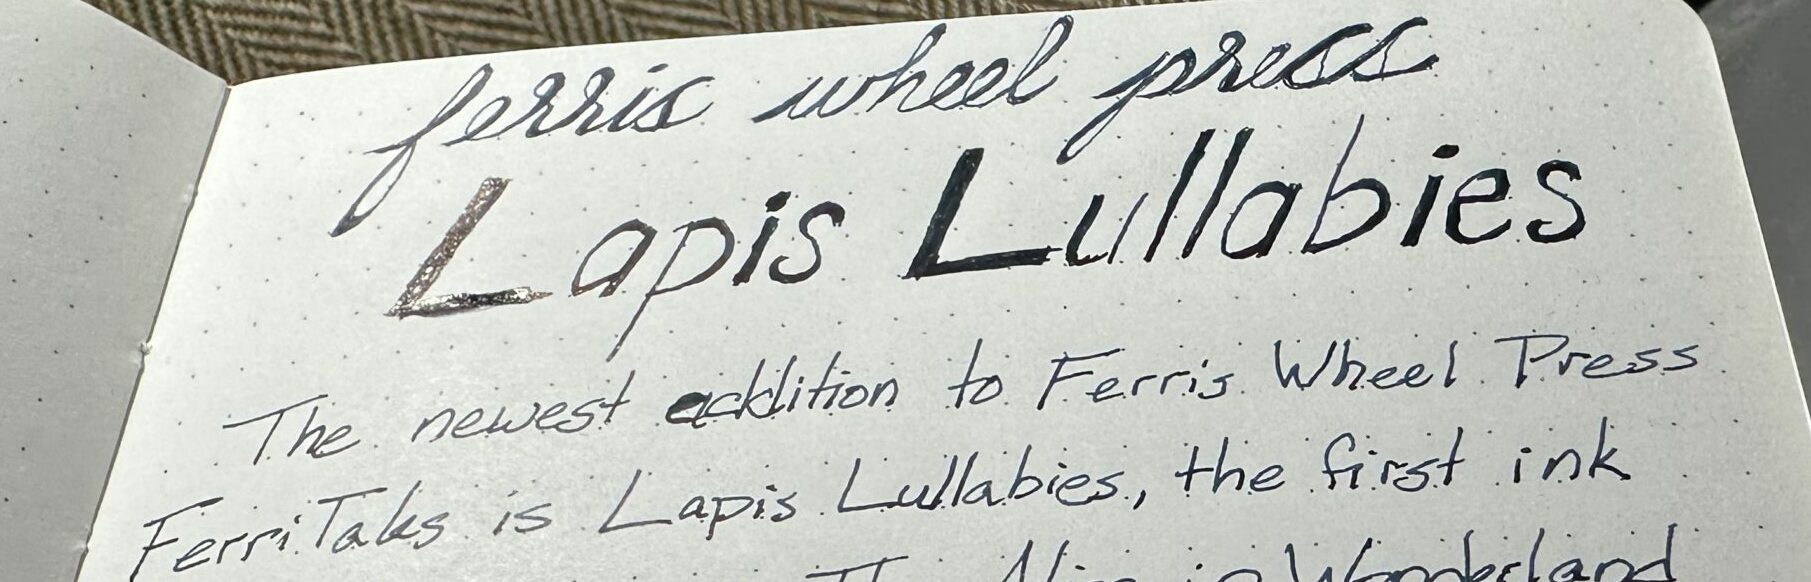 ferris wheel press
Lapis Lullabies
The newest addition to Ferris Wheel Press
FerriTales is Lapis Lullabies, the first ink
in Wonderland